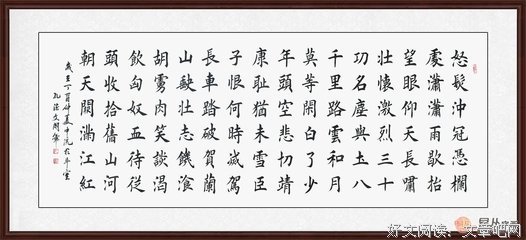 怒髮沖冠憑欄
處瀟瀟雨歇抬
望眼仰天長嘯
壯懷激烈三十
功名塵與土八
千里路雲和月
莫等閑白了少
年頭空悲切靖
康耻猶未雪臣
子恨何時滅駕
長車踏破賀蘭
山缺壯志饑飡
胡虜肉笑談渴
飲匈奴血待從
頭收拾舊山河
朝天闕滿江紅
好文阅读，文章吧网